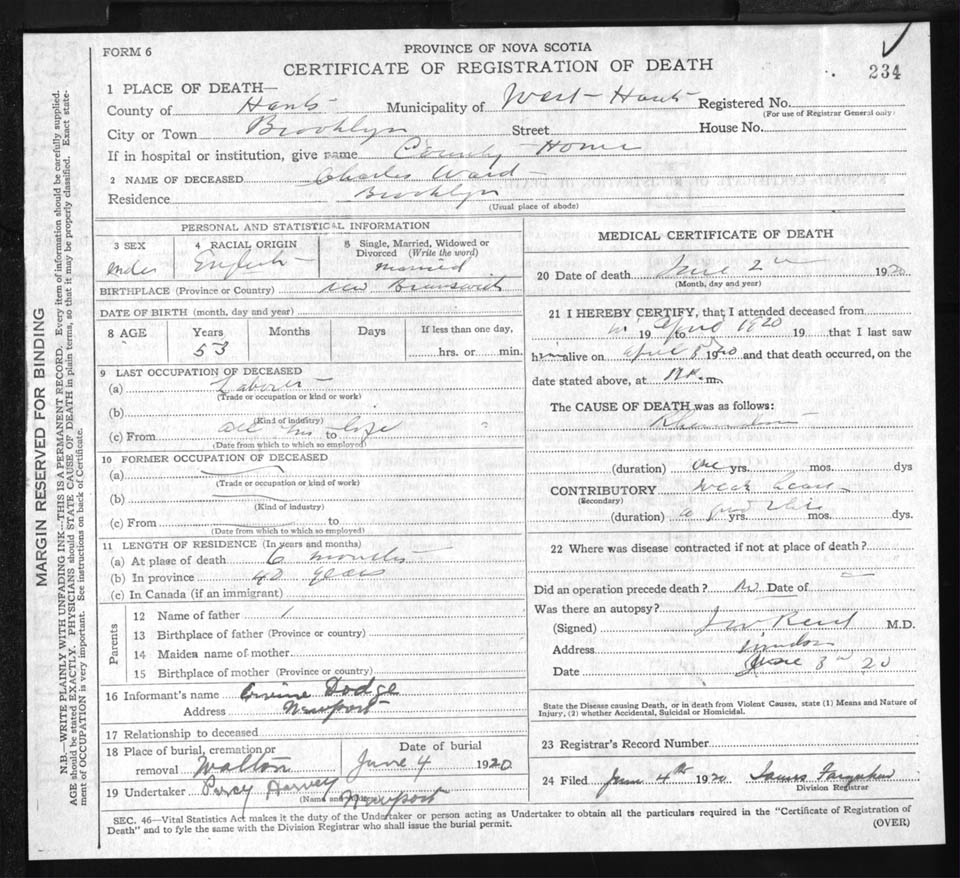 FORM 6
PROVINCE OF NOVA SCOTIA
CERTIFICATE OF REGISTRATION OF DEATH
234
1 PLACE OF DEATH—
County of Hants Municipality of West-Hants Registered No.
(For use of Registrar General only)
City or Town Brooklyn Street House No.
If in hospital or institution, give name County Home
2 NAME OF DECEASED Charles Ward
Residence Brooklyn
(Usual place of abode)
PERSONAL AND STATISTICAL INFORMATION
3 SEX 4 RACIAL ORIGIN 5 Single, Married, Widowed or Divorced (Write the word)
English married
BIRTHPLACE (Province or Country) New Brunswick
DATE OF BIRTH (month, day and year)
8 AGE Years Months Days If less than one day,
53 hrs. or min.
9 LAST OCCUPATION OF DECEASED
(a) Laborer
(Trade or occupation or kind of work)
(b)
(Kind of industry)
(c) From all his to life
(Date from which to which so employed)
10 FORMER OCCUPATION OF DECEASED
(a)
(Trade or occupation or kind of work)
(b)
(Kind of industry)
(c) From to
(Date from which to which so employed)
11 LENGTH OF RESIDENCE (In years and months)
(a) At place of death 6 months
(b) In province 40 years
(c) In Canada (if an immigrant)
Parents
12 Name of father
13 Birthplace of father (Province or country)
14 Maiden name of mother
15 Birthplace of mother (Province or country)
16 Informant's name Dodge
Address Newport
17 Relationship to deceased
18 Place of burial, cremation or removal Walton Date of burial June 4 1920
19 Undertaker Percy Harvey
(Name and
Newport
MEDICAL CERTIFICATE OF DEATH
20 Date of death June 2nd 1920
(Month, day and year)
21 I HEREBY CERTIFY, that I attended deceased from
in 19 to April 1920 19 that I last saw
him alive on April 1920 and that death occurred, on the
date stated above, at m.
The CAUSE OF DEATH was as follows:
(duration) one yrs. mos. dys
CONTRIBUTORY weak heart
(Secondary)
(duration) a good yrs. mos. dys.
22 Where was disease contracted if not at place of death?
Did an operation precede death? No Date of
Was there an autopsy?
(Signed) J W Reid M.D.
Address Windsor
Date June 3rd 20
State the Disease causing Death, or in death from Violent Causes, state (1) Means and Nature of
Injury, (2) whether Accidental, Suicidal or Homicidal.
23 Registrar's Record Number
24 Filed June 4th 1920 James Farquhar
Division Registrar
SEC. 46—Vital Statistics Act makes it the duty of the Undertaker or person acting as Undertaker to obtain all the particulars required in the "Certificate of Registration of
Death" and to fyle the same with the Division Registrar who shall issue the burial permit.
(OVER)
MARGIN RESERVED FOR BINDING
N.B.—WRITE PLAINLY WITH UNFADING INK—THIS IS A PERMANENT RECORD. Every item of information should be carefully supplied.
AGE should be stated EXACTLY. PHYSICIANS should STATE CAUSE OF DEATH in plain terms, so that it may be properly classified. Exact state-
ment of OCCUPATION is very important. See instructions on back of Certificate.